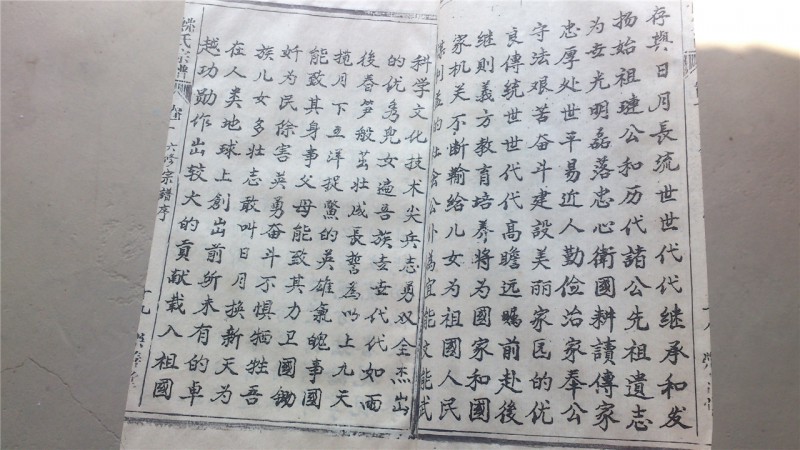 存與日月長流世世代代继承和发
扬始祖璉公和历代諸公先祖遺志
为女光明磊落忠心衛國耕讀傳家
忠厚处世平易近人勤俭治家奉公
守法艰苦奋斗建設美丽家园的优
良傳统世世代代高瞻远瞩前赴後
继則義方教育培养將为國家和國
家机关不断輸给儿女为祖國人民
社会公仆為宜能文能武
科学文化技术尖兵志勇双全杰出
的优秀児女遍吾族去世代代如雨
後春笋般茁壮成長誓為以上九天
揽月下五洋捉鱉的英雄氣魄事國
能致其身事父母能致其力卫國锄
奸为民除害英勇奋斗不惧牺牲吾
族儿女多壮志敢叫日月换新天为
在人类地球上創出前所未有的卓
越功勋作出较大的貢献载入祖國
氏宗譜
六修宗譜序
十九
十八